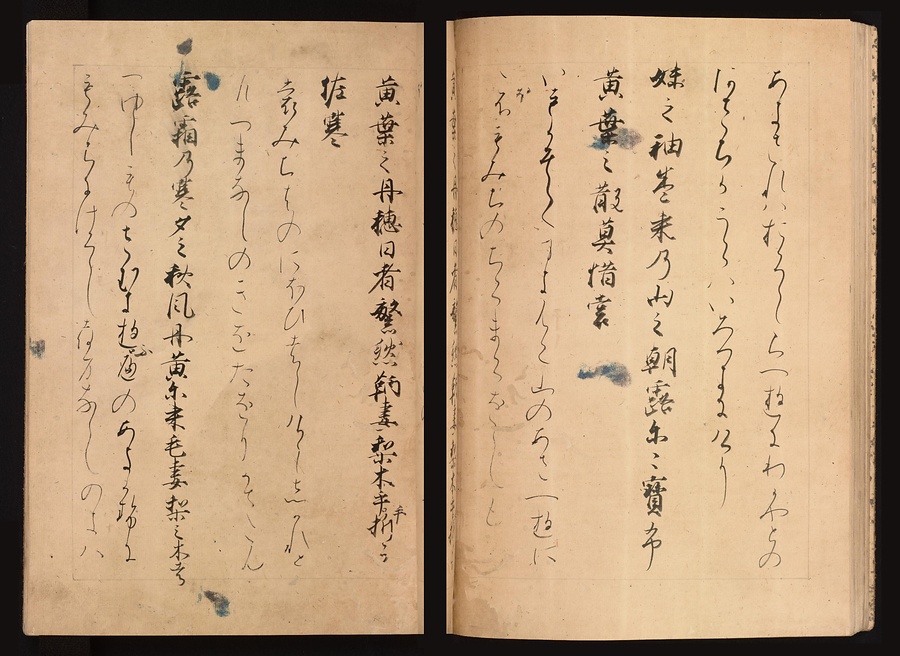 あきされはおくしらつゆにわかやとの
あさちかうらはいろつきにけり
妹之袖巻来乃山之朝露尓々寶布
黄葉之散莫惜裳
いもかそてまきくの山のあさつゆに
にほふもみちのちらまくをしも
黄葉之丹穂日者繁然鞆妻梨木乎手折可
佐寒
もみちはのにほひはしけししかれと
つまなしのきをたをりかさゝん
露霜乃寒夕之秋風丹黄尓来毛妻梨之木者
つゆしものさむきゆふへのあきかせに
もみちにけらしつまなしのきは